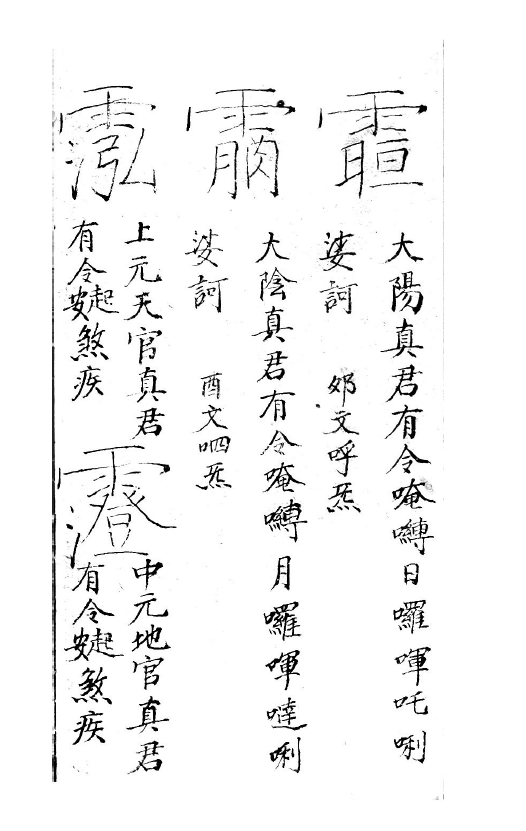 大陽真君有令唵嚩日囉喗吒唎
娑訶 夘文呼炁
大陰真君有令唵嚩月囉喗噠唎
娑訶 酉文呬炁
上元天官真君
有令起煞疾
中元地官真君
有令起煞疾